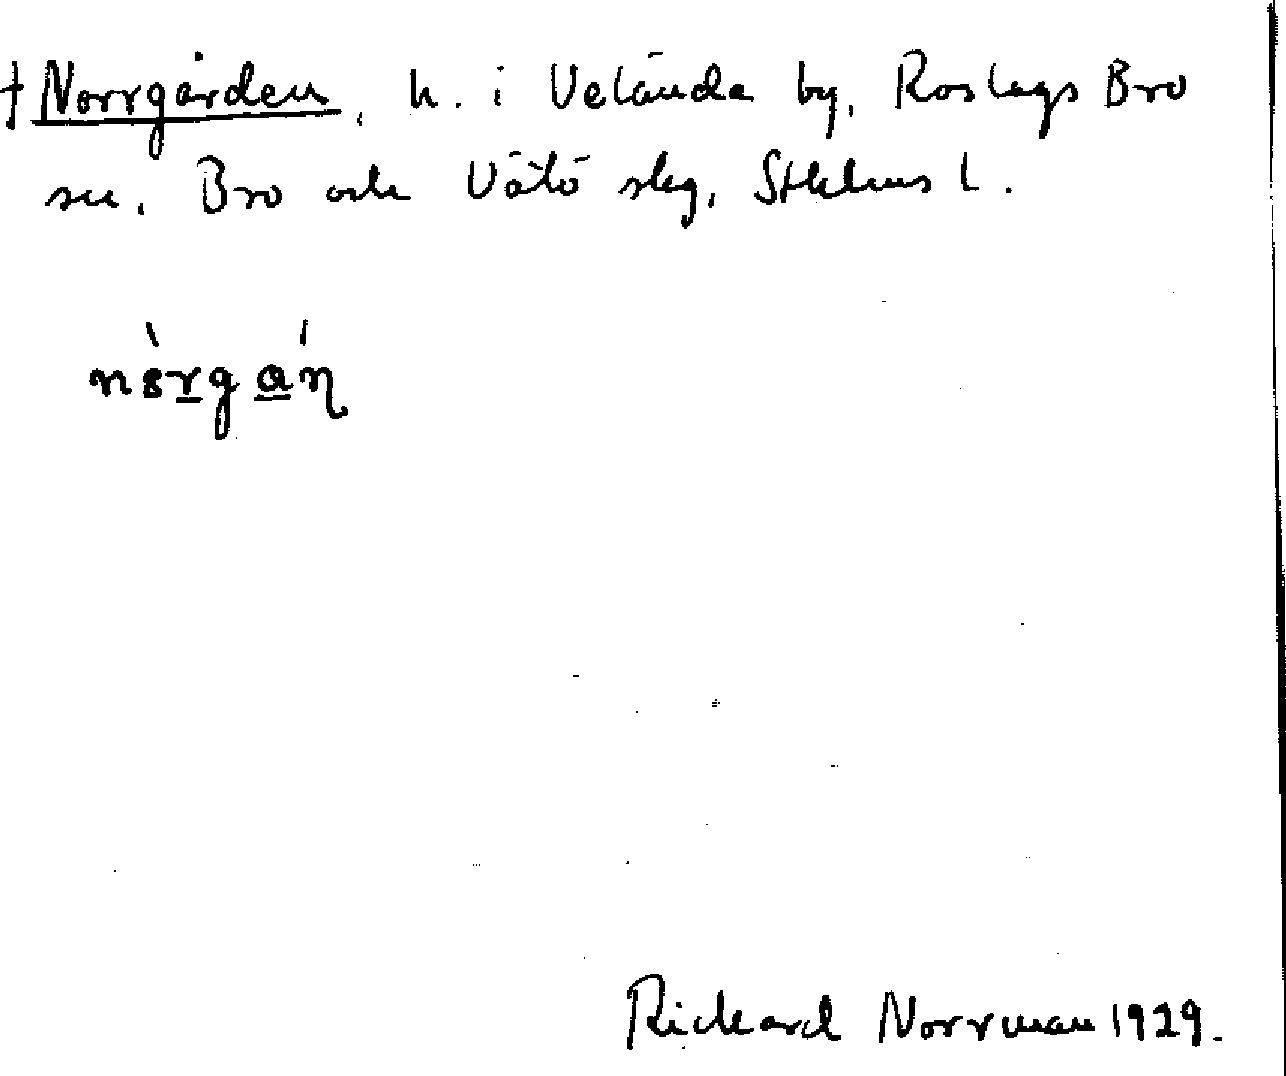 † Norrgården, h. i Veländа by, Roslags Bro
sn. Bro och Vätö skg, Sthlms l.
Rickard Norrman 1929.